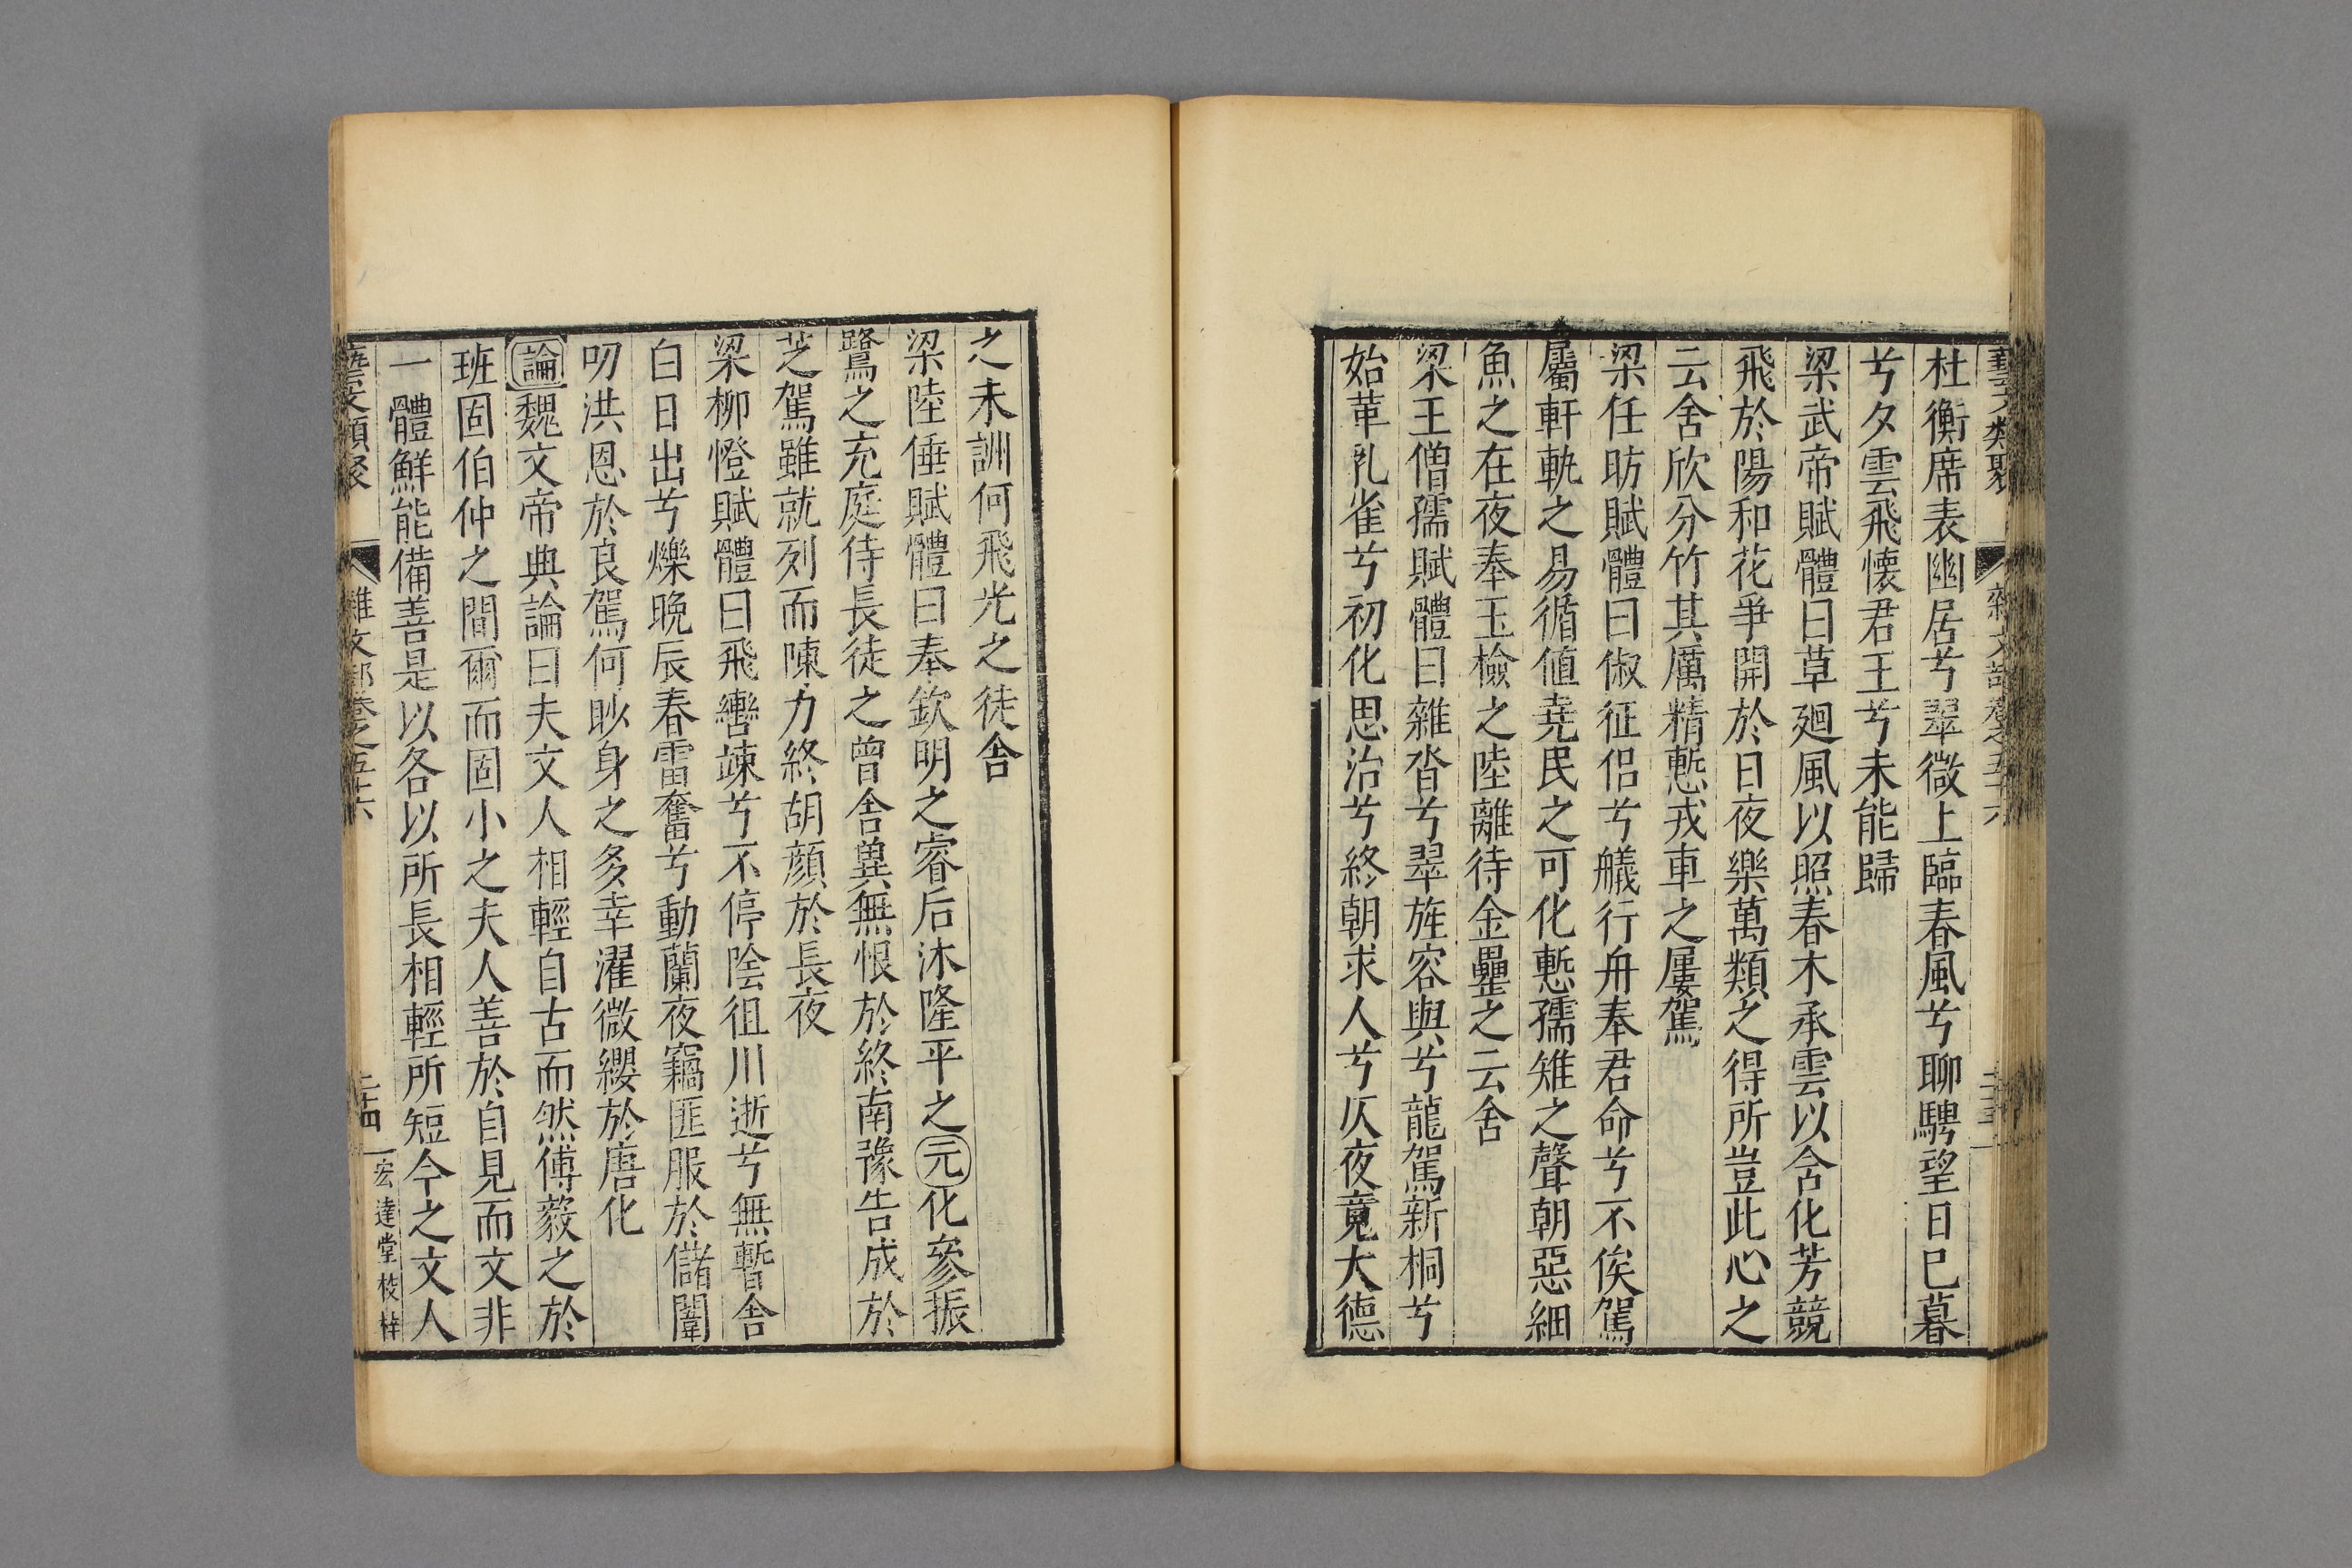 藝文類聚 雜文部卷之五十六 二十三
杜衡席表幽居兮翠微上臨春風兮聊騁望日巳暮
兮夕雲飛懷君王兮未能歸
梁武帝賦體曰草廻風以照春木承雲以含化芳競
飛於陽和花爭開於日夜樂萬類之得所豈此心之
云舍欣分竹其厲精慙戎車之屢駕
梁任昉賦體曰俶征侶兮艤行舟奉君命兮不俟駕
屬軒軌之易循値堯民之可化慙孺雉之聲朝惡細
魚之在夜奉玉檢之陸離待金罍之云舍
梁王僧孺賦體曰雜沓兮翠旌容與兮龍駕新桐兮
始華乳雀兮初化思治兮終朝求人兮仄夜竟大德
之未訓何飛光之徒舍
梁陸倕賦體曰奉欽明之睿后沐隆平之元化參振
鷺之充庭侍長徒之曾舍兾無恨於終南豫告成於
芝駕雖就列而陳力終胡顏於長夜
梁柳憕賦體曰飛轡竦兮不停陰徂川逝兮無暫舍
白日出兮爍晩辰春雷奮兮動蘭夜竊匪服於儲闈
叨洪恩於良駕何眇身之多幸濯微纓於唐化
論魏文帝典論曰夫文人相輕自古而然傅毅之於
班固伯仲之間爾而固小之夫人善於自見而文非
一體鮮能備善是以各以所長相輕所短今之文人
藝文類聚 雜文部卷之五十六 二十四 宏達堂校梓